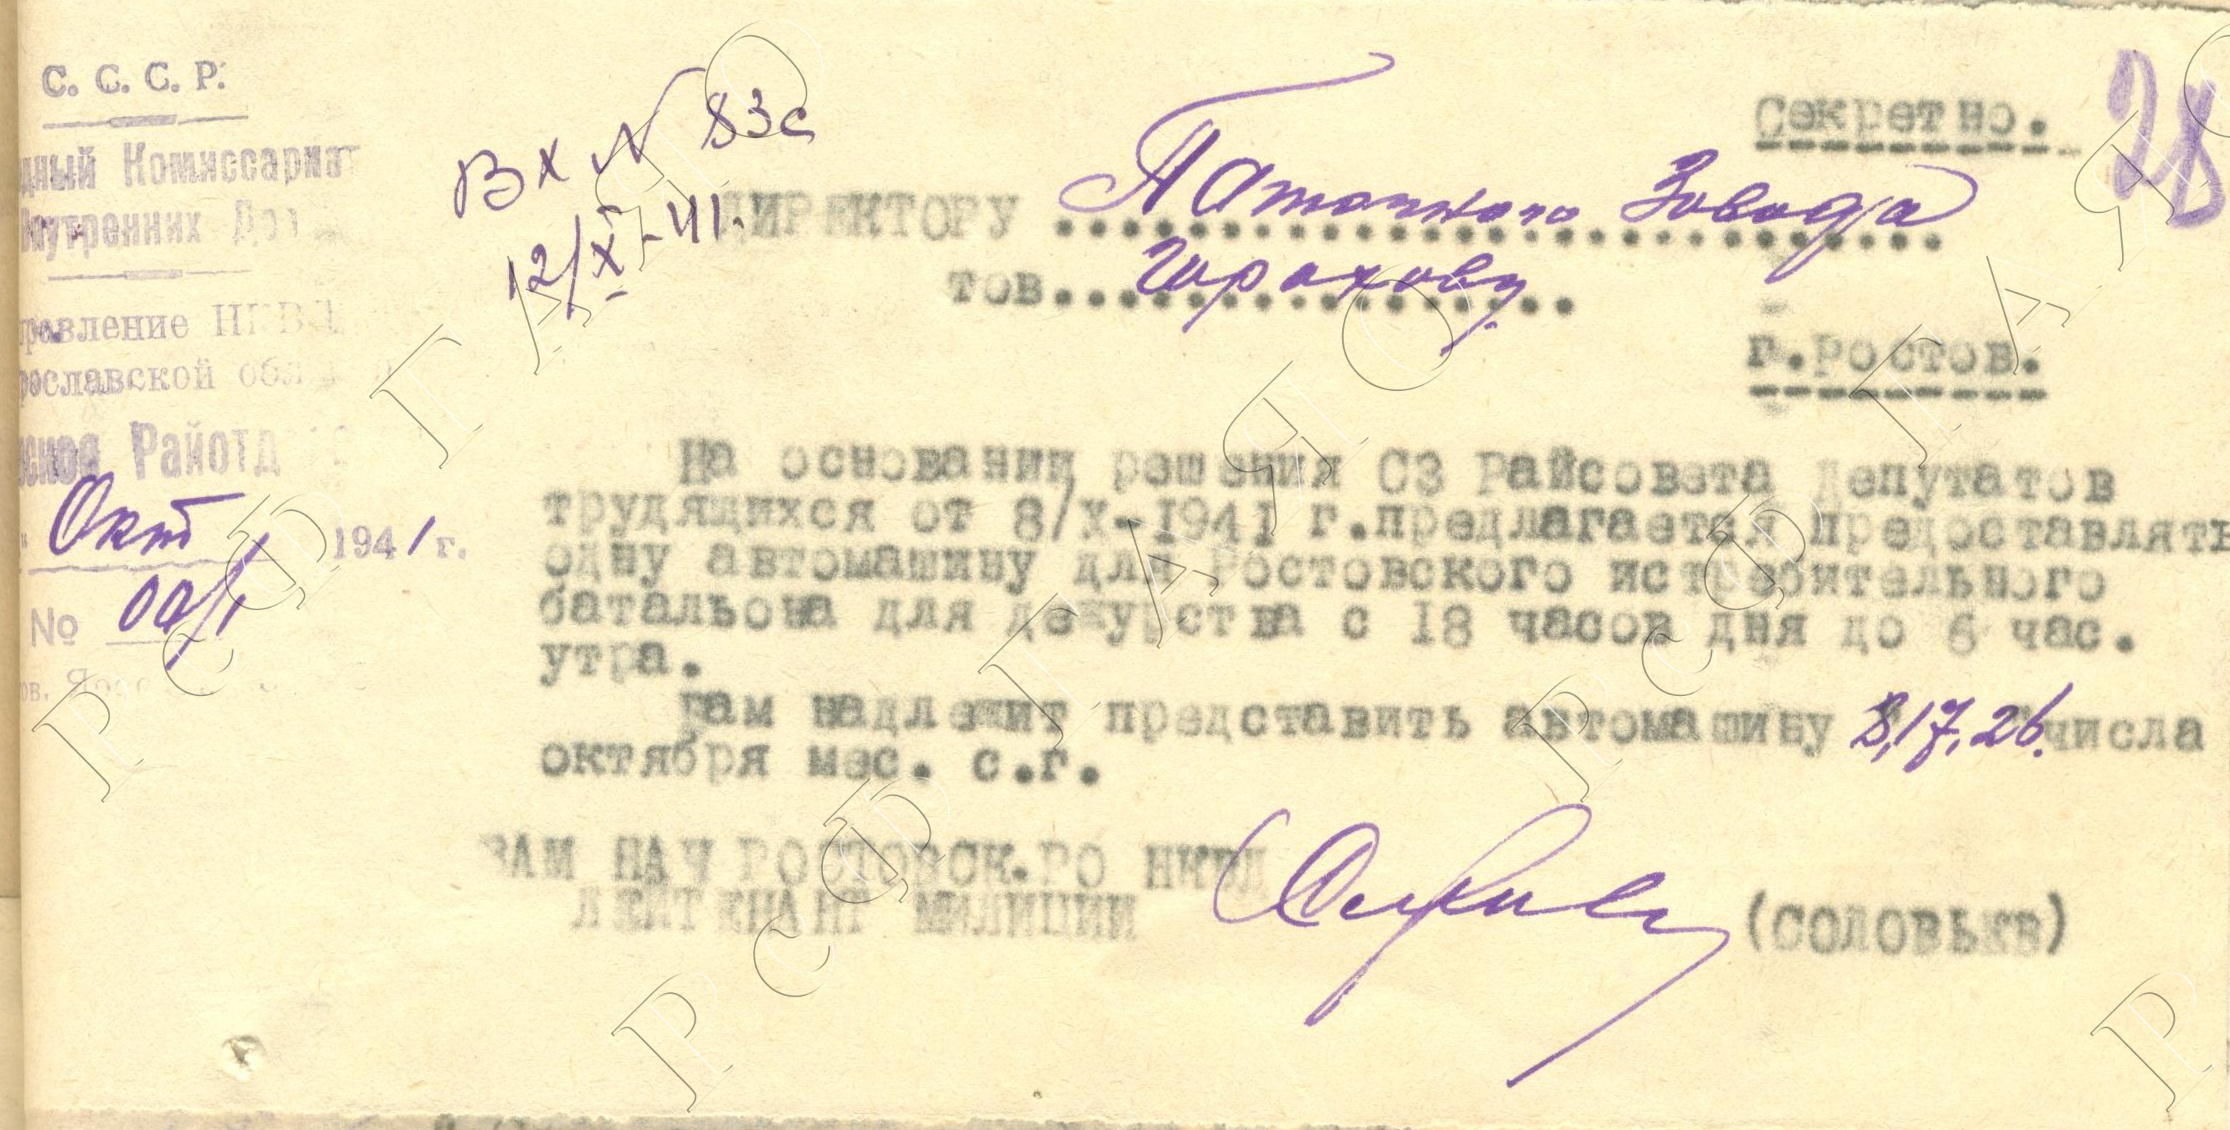 С. С. С. Р.
дный Комиссариат
Внутренних Дел
правление НКВД
рославской обл
ское Райотд
Окт 1941 г.
№
Вх № 83с
12/X-41.
Секретно.
28
ДИРЕКТОРУ Паточного Завода
тов. Горохову
г.Ростов.
На основании решения СЗ Райсовета Депутатов
трудящихся от 8/Х-1941 г.предлагается предоставлять
одну автомашину для Ростовского истребительного
батальона для дежурства с 18 часов дня до 6 час.
утра.
Вам надлежит представить автомашину 8,17,26. числа
октября мес. с.г.
ЗАМ НАЧ РОСТОВСК.РО НКВД
ЛЕЙТЕНАНТ МИЛИЦИИ (СОЛОВЬЕВ)
РСФ ГАЯО